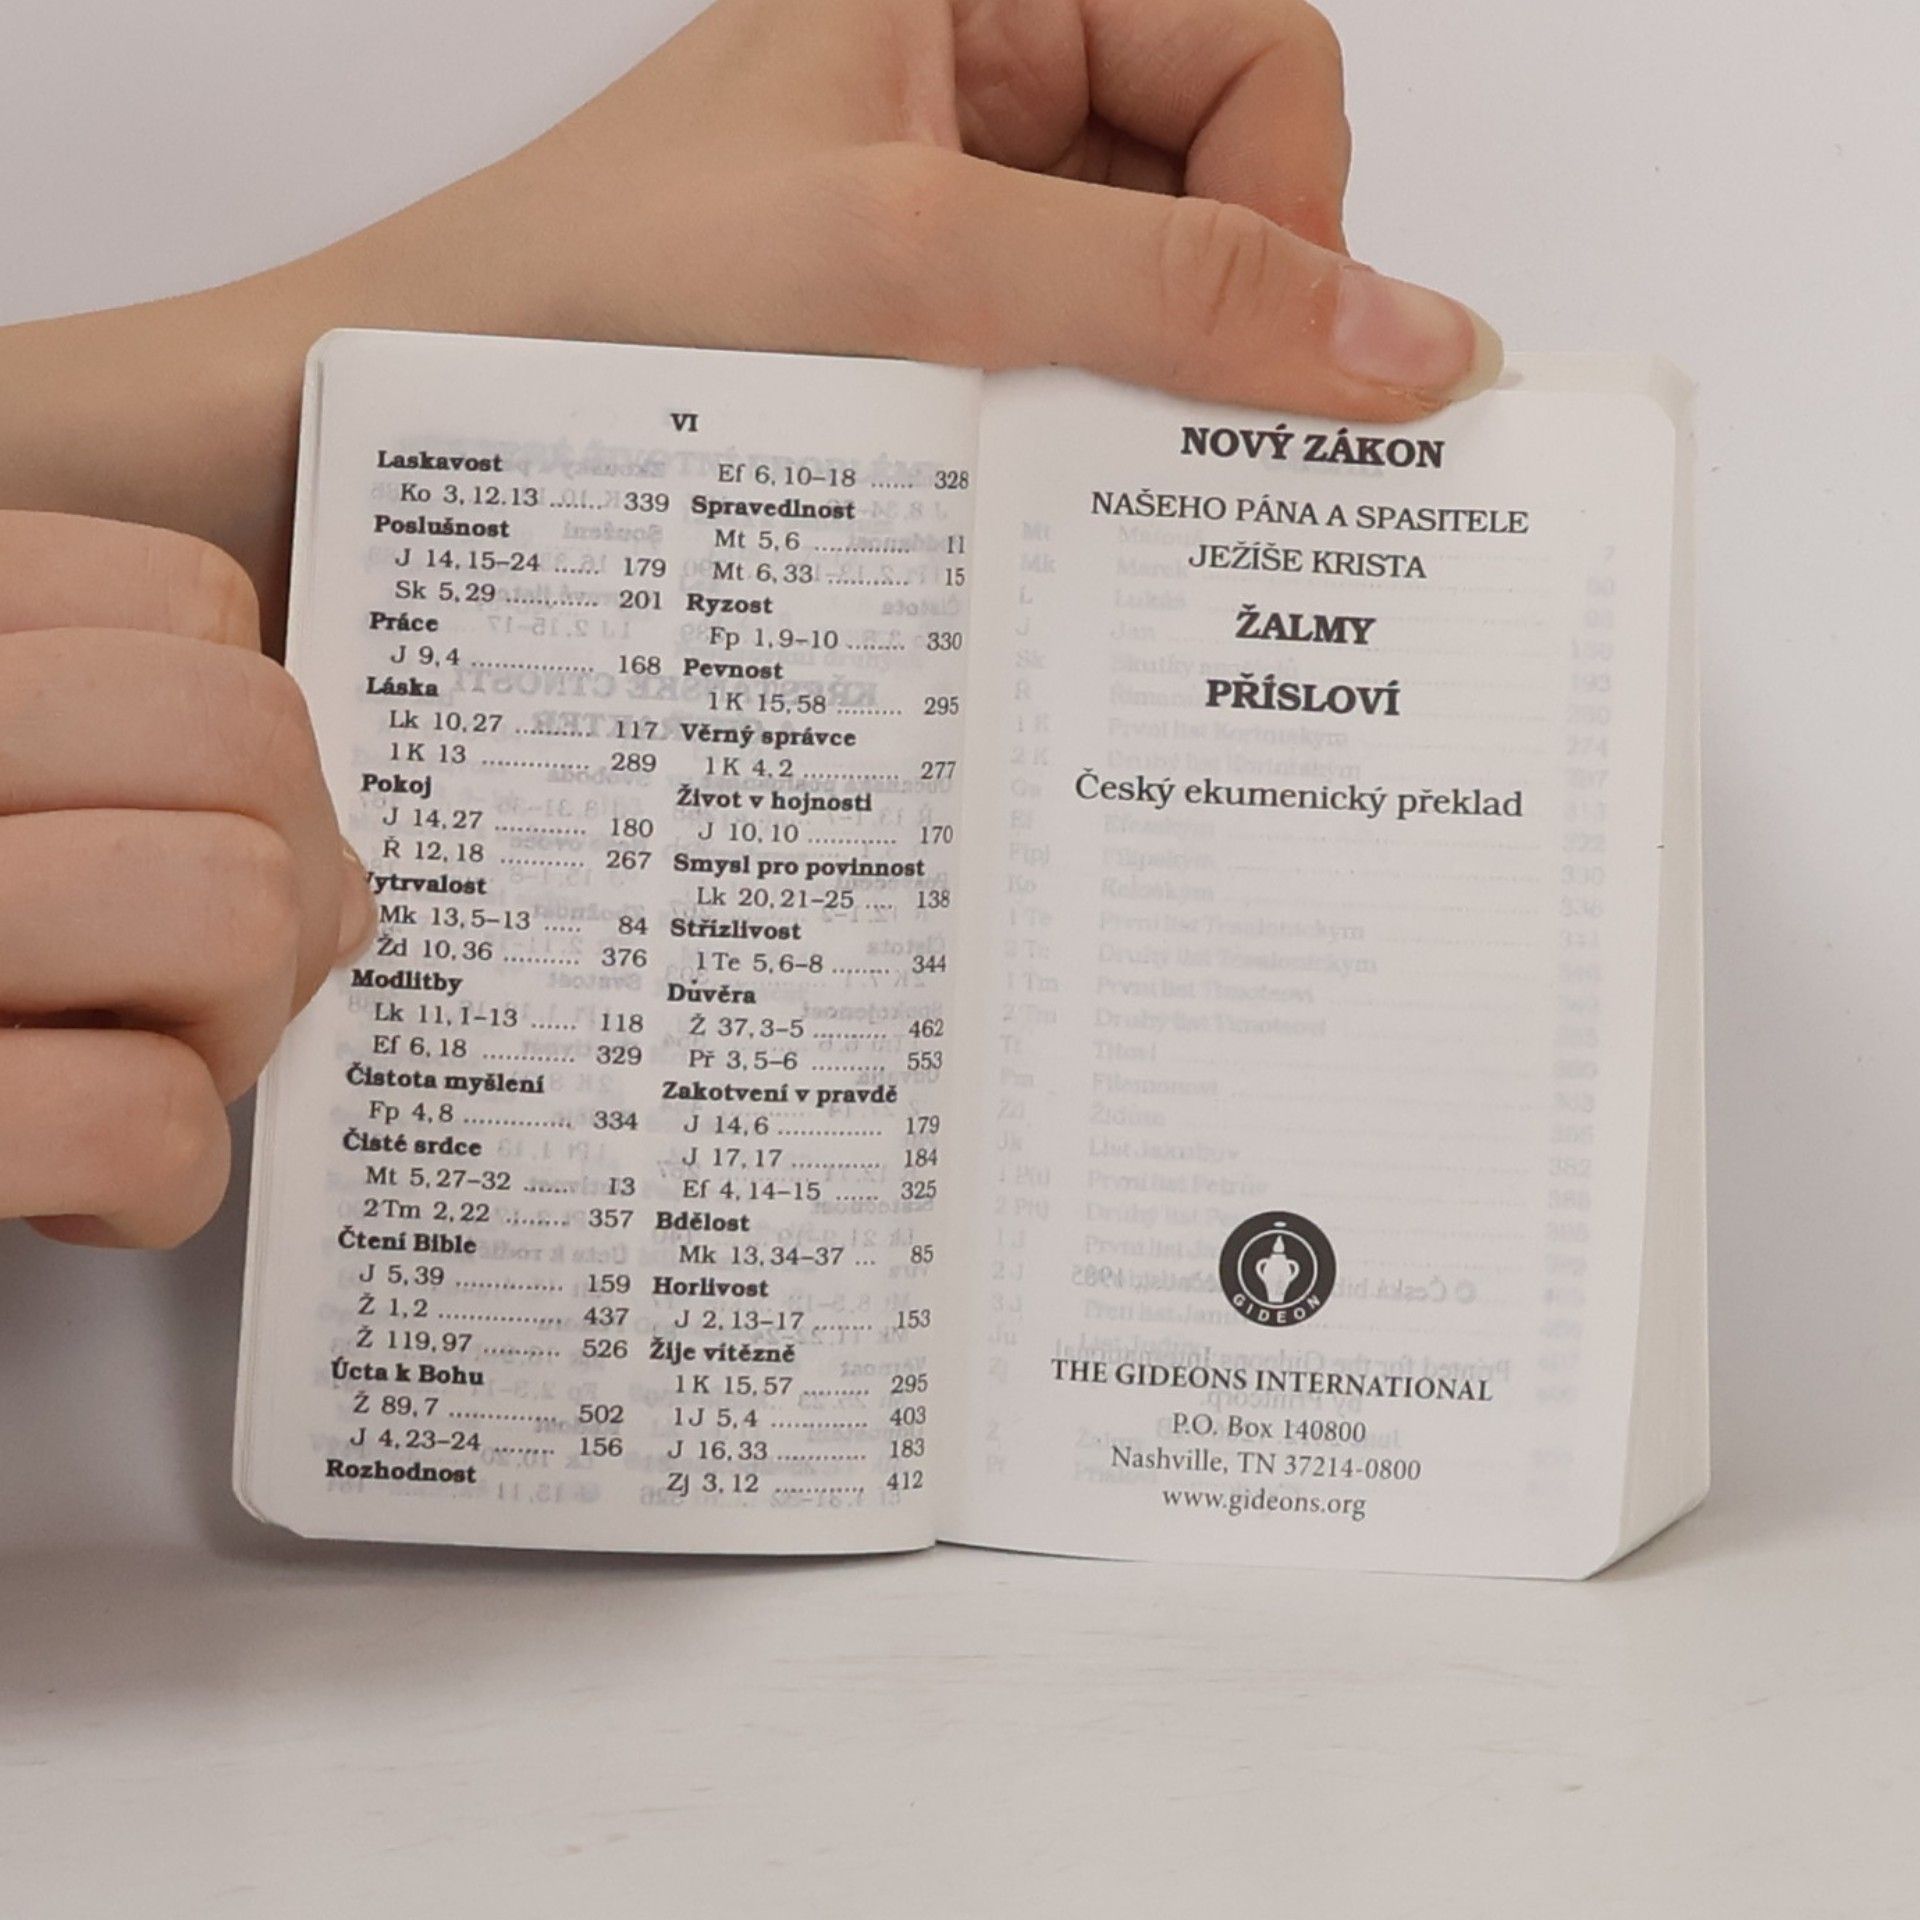 VI
Laskavost
Ko 3, 12.13 ....... 339
Poslušnost
J 14, 15–24 ...... 179
Sk 5, 29 ............. 201
Práce
J 9, 4 ................. 168
Láska
Lk 10, 27 ........... 117
1 K 13 ............... 289
Pokoj
J 14, 27 ............. 180
Ř 12, 18 ............ 267
Vytrvalost
Mk 13, 5–13 ..... 84
Žd 10, 36 ........... 376
Modlitby
Lk 11, 1–13 ....... 118
Ef 6, 18 ............. 329
Čistota myšlení
Fp 4, 8 ............... 334
Čisté srdce
Mt 5, 27–32 ....... 13
2 Tm 2, 22 ......... 357
Čtení Bible
J 5, 39 ............... 159
Ž 1, 2 ................. 437
Ž 119, 97 ........... 526
Úcta k Bohu
Ž 89, 7 ............... 502
J 4, 23–24 ......... 156
Rozhodnost
Ef 6, 10–18 ...... 328
Spravedlnost
Mt 5, 6 .............. 11
Mt 6, 33 ............ 15
Ryzost
Fp 1, 9–10 ........ 330
Pevnost
1 K 15, 58 ......... 295
Věrný správce
1 K 4, 2 ............. 277
Život v hojnosti
J 10, 10 ............ 170
Smysl pro povinnost
Lk 20, 21–25 .... 138
Střízlivost
1 Te 5, 6–8 ........ 344
Důvěra
Ž 37, 3–5 .......... 462
Př 3, 5–6 .......... 553
Zakotvení v pravdě
J 14, 6 .............. 179
J 17, 17 ............ 184
Ef 4, 14–15 ...... 325
Bdělost
Mk 13, 34–37 ... 85
Horlivost
J 2, 13–17 ........ 153
Žije vítězně
1 K 15, 57 ......... 295
1 J 5, 4 ............. 403
J 16, 33 ............ 183
Zj 3, 12 ............ 412
NOVÝ ZÁKON
NAŠEHO PÁNA A SPASITELE
JEŽÍŠE KRISTA
ŽALMY
PŘÍSLOVÍ
Český ekumenický překlad
GIDEON
THE GIDEONS INTERNATIONAL
P.O. Box 140800
Nashville, TN 37214-0800
www.gideons.org